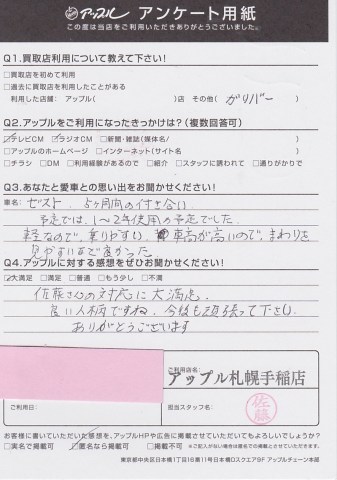 アップル アンケート用紙
この度は当店をご利用いただきありがとうございました。
Q1.買取店利用について教えて下さい!
□買取店を初めて利用
□過去に買取店を利用したことがある
利用した店舗: アップル( )店 その他( ガリバー )
Q2.アップルをご利用になったきっかけは?(複数回答可)
□テレビCM □ラジオCM □新聞・雑誌(媒体名/ )
□アップルのホームページ □インターネット(サイト名 )
□チラシ □DM □利用経験があるので □紹介 □スタッフに誘われて □通りがかりで
Q3.あなたと愛車との思い出をお聞かせください!
車名: ゼスト 5ヶ月間の付き合い
予定では、1~2年使用の予定でした
軽なので、乗りやすい 車高が高いので、まわりを
見やすいまで良かった
Q4.アップルに対する感想をぜひお聞かせください!
□大満足 □満足 □普通 □もう少し □不満
佐藤さんの対応に大満足。
良い人柄ですね 今後も頑張って下さい
ありがとうございます
ご利用店名:
アップル札幌手稲店
ご利用日:
担当スタッフ名:
佐藤
お客様に書いていただいた感想を、アップルHPや広告に掲載させていただいてもよろしいでしょうか?
□実名で掲載可 □匿名なら掲載可 □掲載不可
東京都中央区日本橋1丁目16番11号日本橋Dスクエア5F アップルチェーン本部